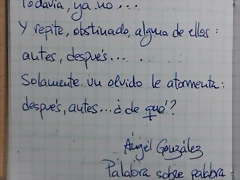 Todavía, ya no...
Y repite, obstinado, alguna de ellas:
antes, después...
Solamente un olvido le atormenta:
después, antes... ¿de qué?
Ángel González
Palabra sobre palabra